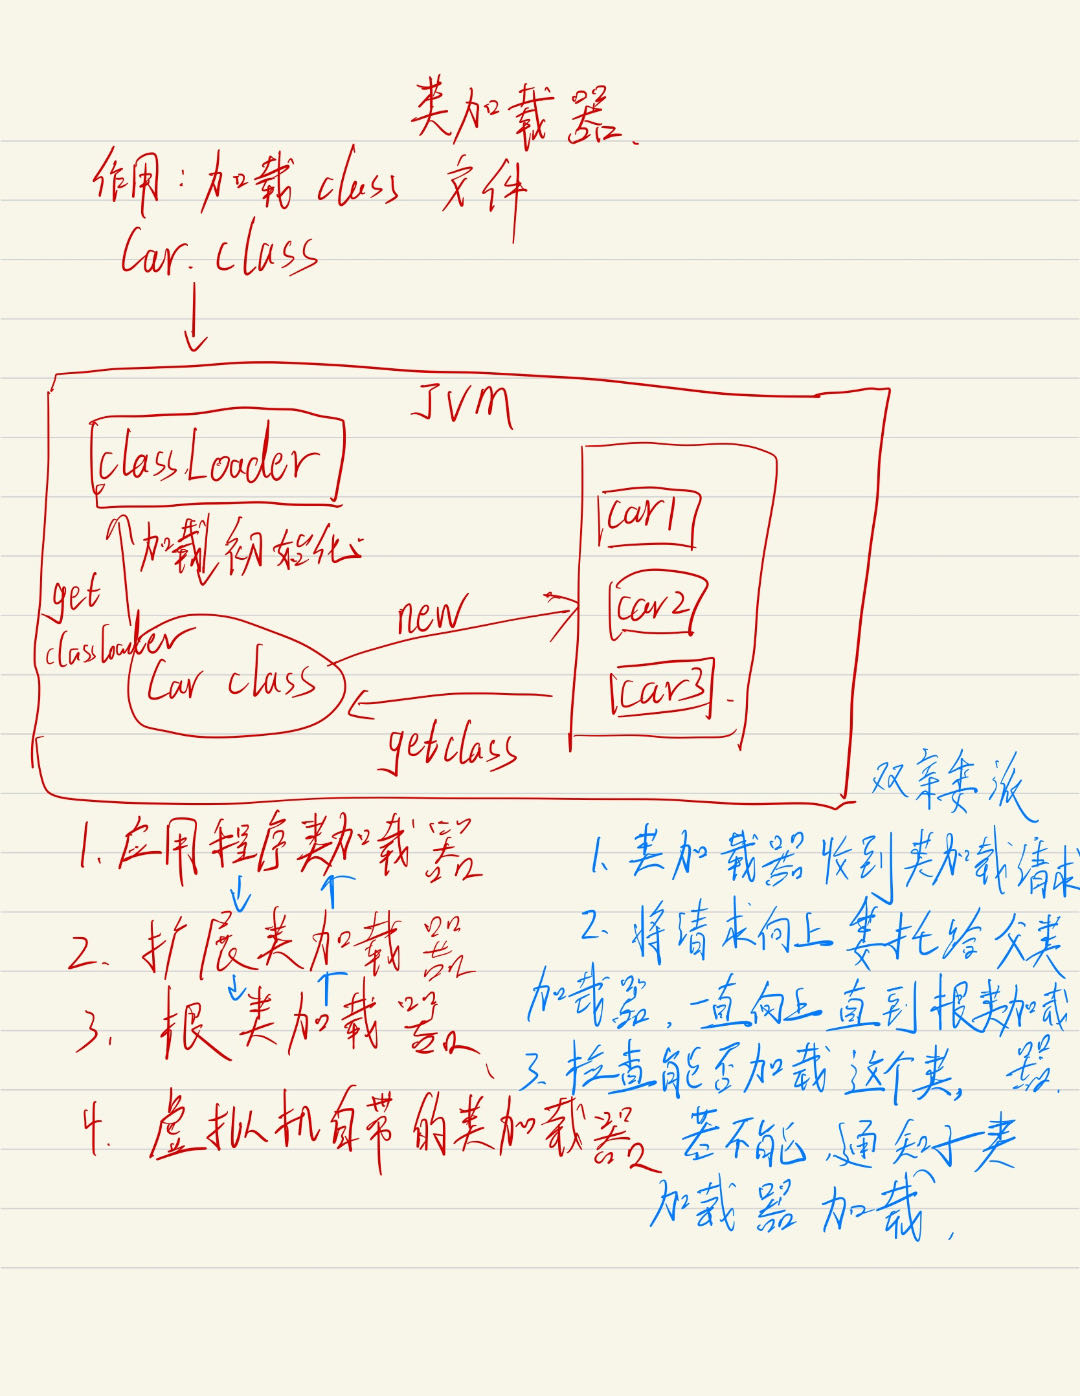 类加载器、
作用：加载class 文件
Car.class
JVM
classLoader
加载 初始化
get
classloader
Car class
new
getclass
car1
car2
car3
1、应用程序类加载器
2、扩展类加载器
3、根类加载器、
4、虚拟机自带的类加载器
双亲委派
1、类加载器收到类加载请求
2、将请求向上委托给父类
加载器，一直向上直到根类加载
器.
3、检查能否加载这个类，
若不能，通知子类
加载器加载，